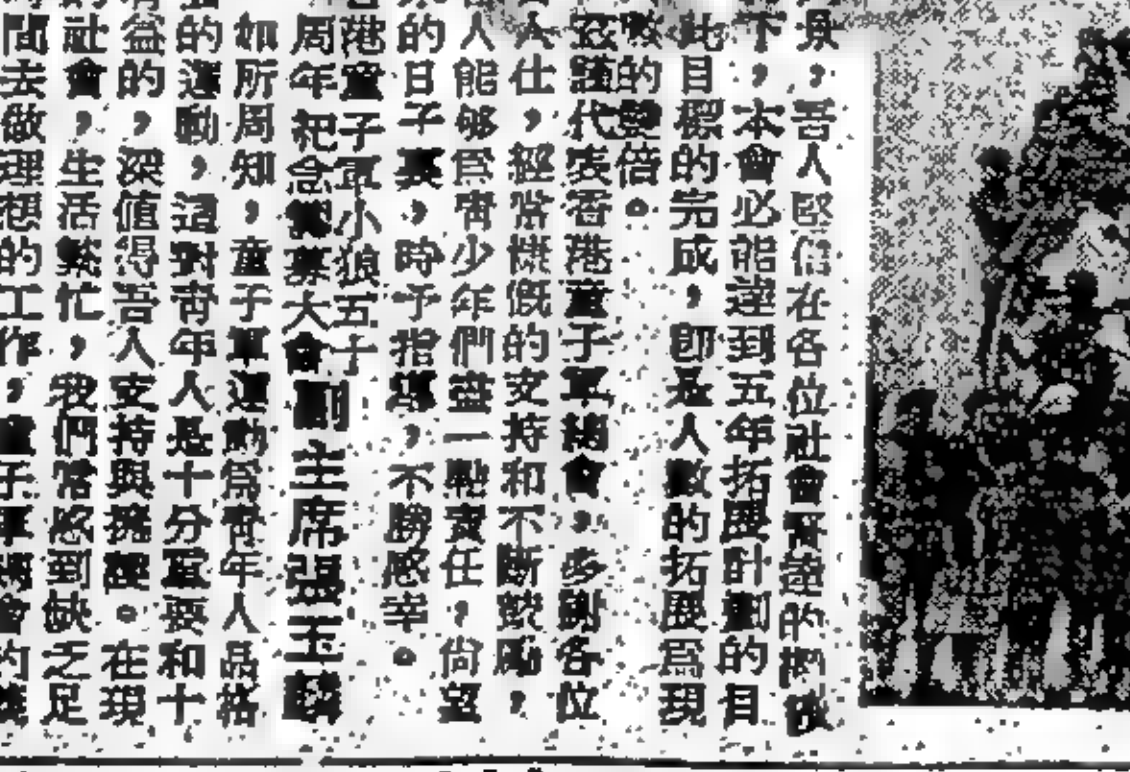 ，吾人堅信在各位社會賢達的
下，本會必能達到五年拓展計劃的目
此目標的完成，即是人數的拓展爲現
的雙倍。
茲謹代表香港童子軍總會，多謝各位
人仕，經常慷慨的支持和不斷鼓勵，
人能够爲靑少年們盡一點責任，尙望
的日子裏，時予指導，不勝感幸。
港童子軍小狼五十
周年紀念籌募大會副主席張玉麟
如所周知，童子軍運動爲靑年人品格
的運動，這對靑年人是十分重要和十
益的，深值得吾人支持與擁護。在現
社會，生活繁忙，我們常感到缺乏足
間去做理想的工作，童子軍總會的